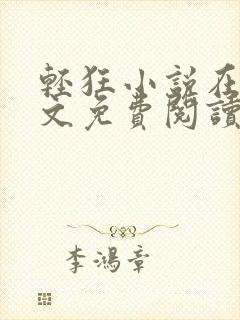 輕狂小說在
文免費閱讀
李鴻章